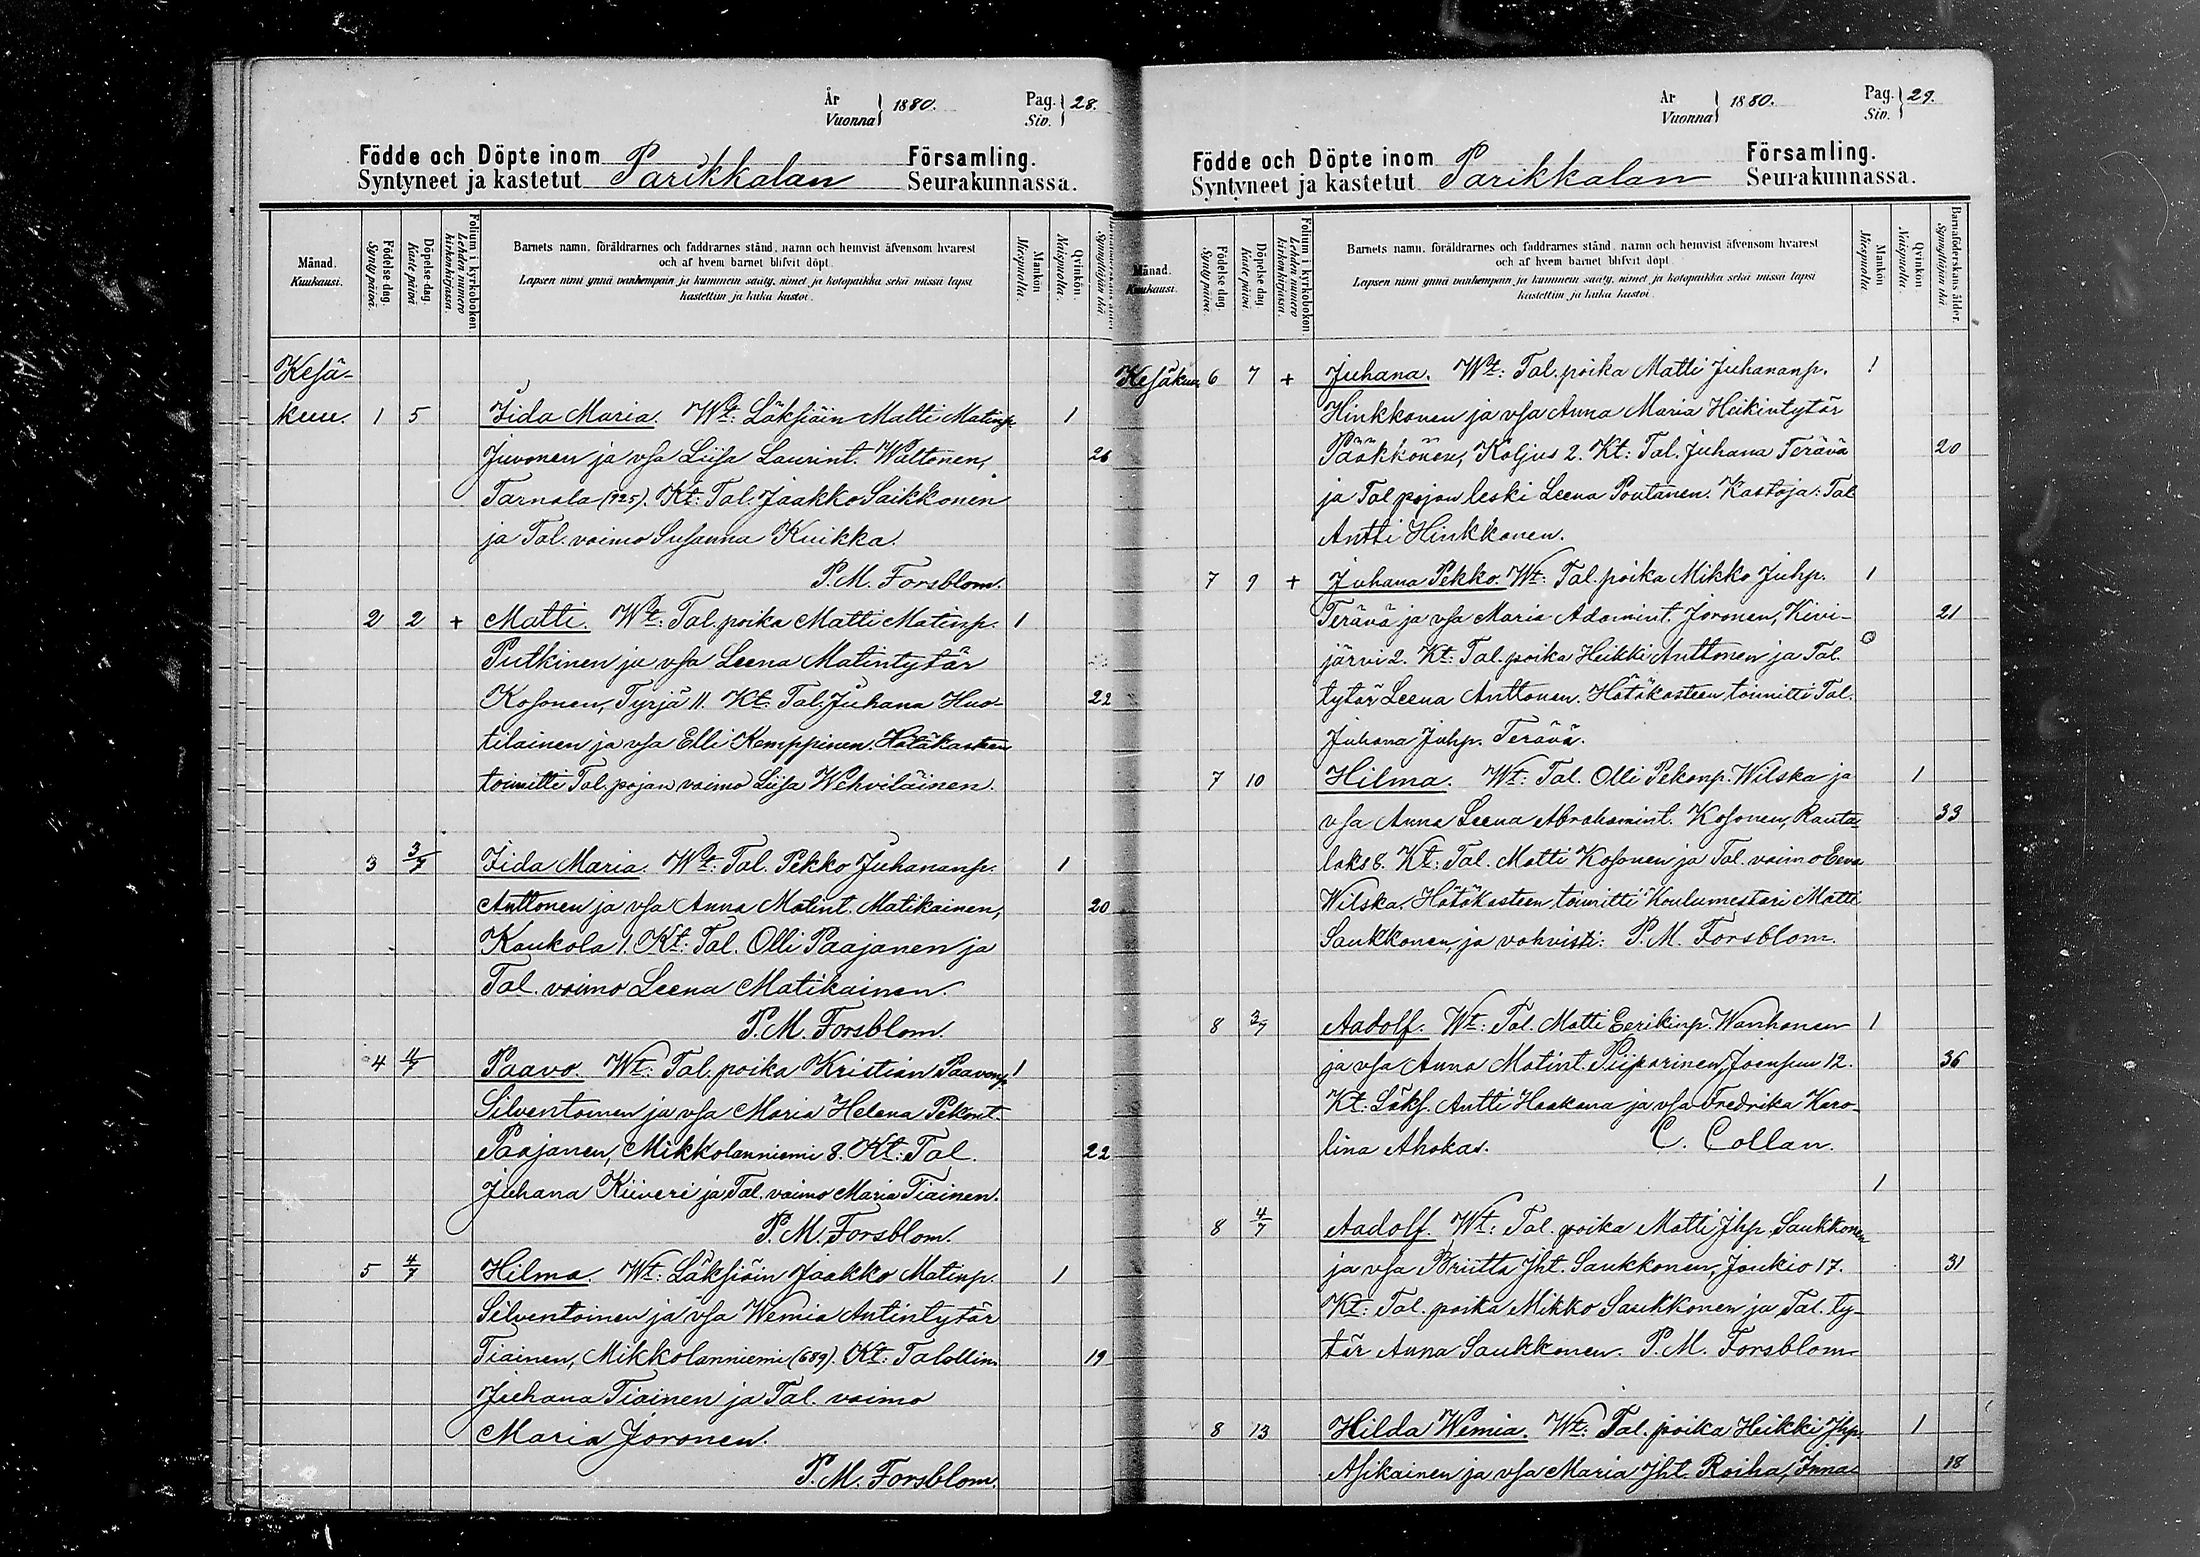 År
Vuonna 1880. Pag. Siv. 28.
Födde och Döpte inom Parikkalan Församling.
Syntyneet ja kastetut Seurakunnassa.
Månad. Kuukausi.
Födelse-dag. Synty päivä.
Döpelse-dag. Kaste päivä
Folium i kyrkoboken. Lehden numero kirkonkirjassa.
Barnets namn, föräldrarnes och faddrarnes stånd, namn och hemvist äfvensom hvarest
och af hvem barnet blifvit döpt.
Lapsen nimi ynnä vanhempain ja kummein sääty, nimet ja kotopaikka sekä missä lapsi
kastettiin ja kuka kastoi.
Mankön Miespuolta.
Qvinkön. Naispuolta.
Kesä-
kuu. 1 5 Iida Maria. Wt: Läksiäin Matti Matinp. 1
Juvonen ja vsa Liisa Laurint. Waltonen, 26
Tarnala (925). Kt: Tal. Jaakko Saikkonen
ja Tal. vaimo Susanna Kuikka.
P. M. Forsblom.
2 2 + Matti. Wt: Tal. poika Matti Matinp. 1
Putkinen ja vsa Leena Matintytär
Kosonen, Tyrjä 11. Kt: Tal. Juhana Huo- 22
tilainen ja vsa Elli Kemppinen. Hätäkasteen
toimitti Tal. pojan vaimo Liisa Wehviläinen.
3 3/7 Iida Maria. Wt: Tal. Pekko Juhananp. 1
Anttonen ja vsa Anna Matint. Matikainen, 20
Kaukola 1. Kt: Tal. Olli Paajanen ja
Tal. vaimo Leena Matikainen.
P. M. Forsblom.
4 4/7 Paavo. Wt: Tal. poika Kristian Paavonp. 1
Silventoinen ja vsa Maria Helena Pekont.
Paajanen, Mikkolanniemi 8. Kt: Tal. 22
Juhana Kiiveri ja Tal. vaimo Maria Tiainen.
P. M. Forsblom.
5 4/7 Hilma. Wt: Läksiäin Jaakko Matinp. 1
Silventoinen ja vsa Wemia Antintytär
Tiainen, Mikkolanniemi (689). Kt: Talollinen 19
Juhana Tiainen ja Tal. vaimo
Maria Joronen.
P. M. Forsblom.
År
Vuonna 1880. Pag. Siv. 29.
Födde och Döpte inom Parikkalan Församling.
Syntyneet ja kastetut Seurakunnassa.
Månad. Kuukausi.
Födelse-dag. Synty päivä.
Döpelse-dag. Kaste päivä.
Folium i kyrkoboken. Lehden numero kirkonkirjassa.
Barnets namn, föräldrarnes och faddrarnes stånd, namn och hemvist äfvensom hvarest
och af hvem barnet blifvit döpt.
Lapsen nimi ynnä vanhempain ja kummein sääty, nimet ja kotopaikka sekä missä lapsi
kastettiin ja kuka kastoi.
Mankön Miespuolta
Qvinkön. Naispuolta.
Barnaföderskans ålder. Synnyttäjän ikä.
Kesäkuu. 6 7 + Juhana. Wt: Tal. poika Matti Juhananp. 1
Hinkkonen ja vsa Anna Maria Heikintytär
Pääkkönen, Koljus 2. Kt: Tal. Juhana Terävä 20
ja Tal pojan leski Leena Poutanen. Kastoja: Tal
Antti Hinkkonen.
7 9 + Juhana Pekko. Wt: Tal. poika Mikko Juhp. 1
Terävä ja vsa Maria Adamint. Joronen, Kivi- 21
järvi 2. Kt: Tal. poika Heikki Anttonen ja Tal.
tytär Leena Anttonen. Hätäkasteen toimitti Tal.
Juhana Juhp. Terävä.
7 10 Hilma. Wt: Tal. Olli Pekonp. Wilska ja 1
vsa Anna Leena Abrahamint. Kosonen, Rauta- 33
laks 8. Kt: Tal. Matti Kosonen ja Tal. vaimo Eeva
Wilska. Hätäkasteen toimitti Koulumestari Matti
Saukkonen, ja vahvisti: P. M. Forsblom.
8 3/7 Aadolf. Wt: Tal. Matti Eerikinp. Wanhanen 1
ja vsa Anna Matint. Piiparinen, Joensuu 12. 36
Kt: Läks. Antti Haakana ja vsa Fredrika Karo-
lina Ahokas. C. Collan.
1
8 4/7 Aadolf. Wt: Tal. poika Matti Jhp. Saukkonen
ja vsa Briitta Jht. Saukkonen, Joukio 17. 31
Kt: Tal. poika Mikko Saukkonen ja Tal. ty-
tär Anna Saukkonen. P. M. Forsblom
8 13 Hilda Wemia. Wt: Tal. poika Heikki Jhp. 1
Asikainen ja vsa Maria Jht. Roiha, Inna- 18